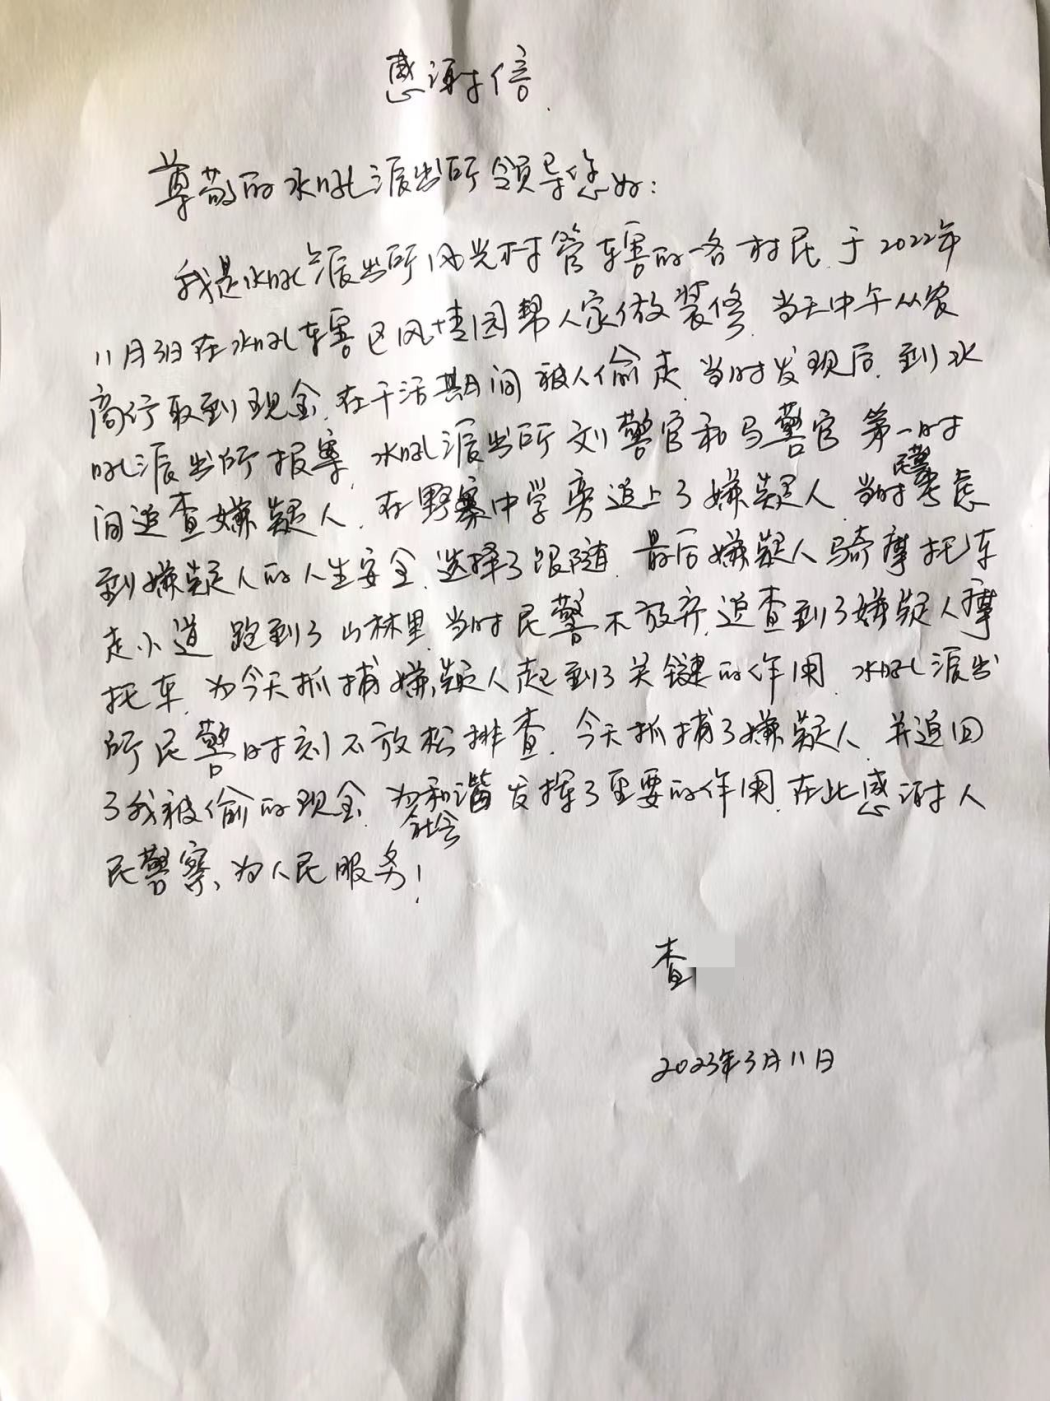 感谢信
尊敬的水吼派出所领导您好：
我是水吼派出所风光村管辖的一名村民，于2022年
11月3日在水吼辖区风情园帮人家做装修，当天中午从农
商行取到现金，在干活期间被人偷走，当时发现后，到水
吼派出所报案，水吼派出所刘警官和马警官第一时
间追查嫌疑人，在野寨中学旁追上了嫌疑人，当时民警考虑
到嫌疑人的人生安全，选择了跟随，最后嫌疑人骑摩托车
走小道跑到了山林里，当时民警不放弃，追查到了嫌疑人摩
托车，为今天抓捕嫌疑人起到了关键的作用，水吼派出
所民警时刻不放松排查，今天抓捕了嫌疑人，并追回
了我被偷的现金，为和谐社会发挥了重要的作用，在此感谢人
民警察，为人民服务！
查
2023年3月11日